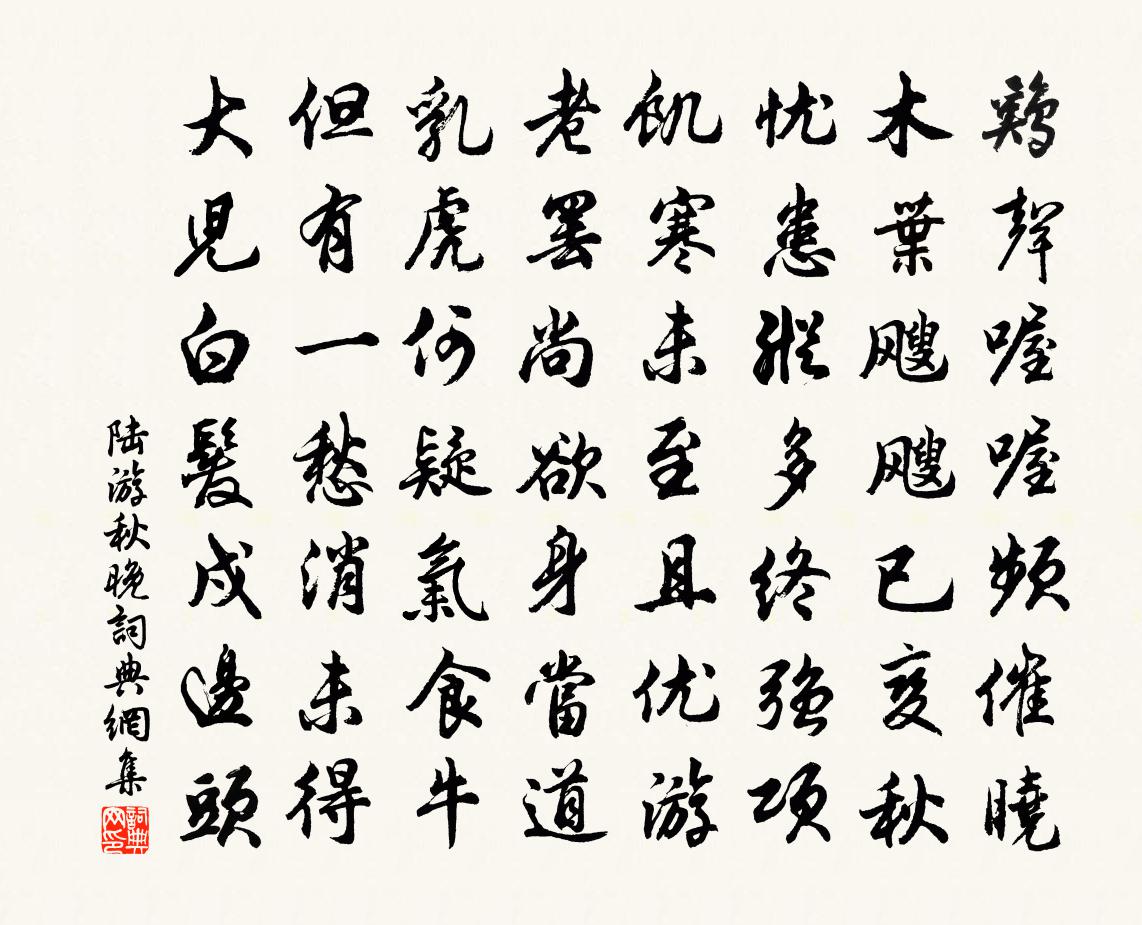 鷄聲喔喔頻催曉
木葉颼颼已变秋
忧患縱多終强项
飢寒未至且优游
老罷尚欲身當道
乳虎何疑氣食牛
但有一愁消未得
大児白髮戍邊頭
陆游秋晚詞典網集
詞典网印